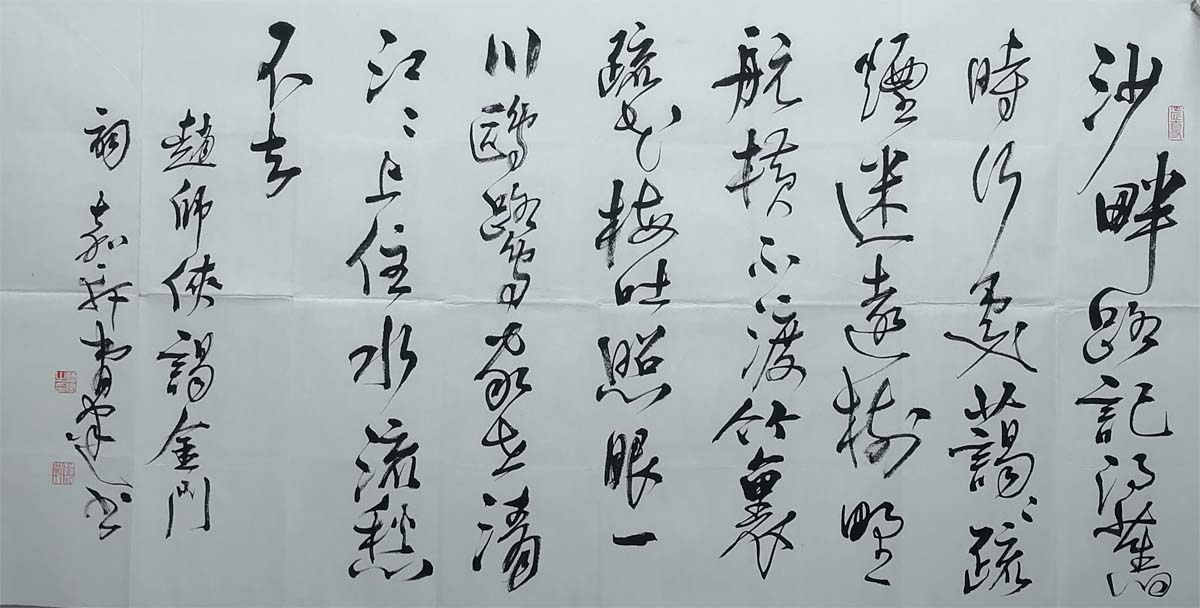 沙畔路記得舊
時行處藹〻疏
煙迷遠樹野
航橫不渡竹裏
疏花梅吐照眼一
川鷗鷺家在清
江〻上住水流愁
不去
趙師俠謁金門
詞 书